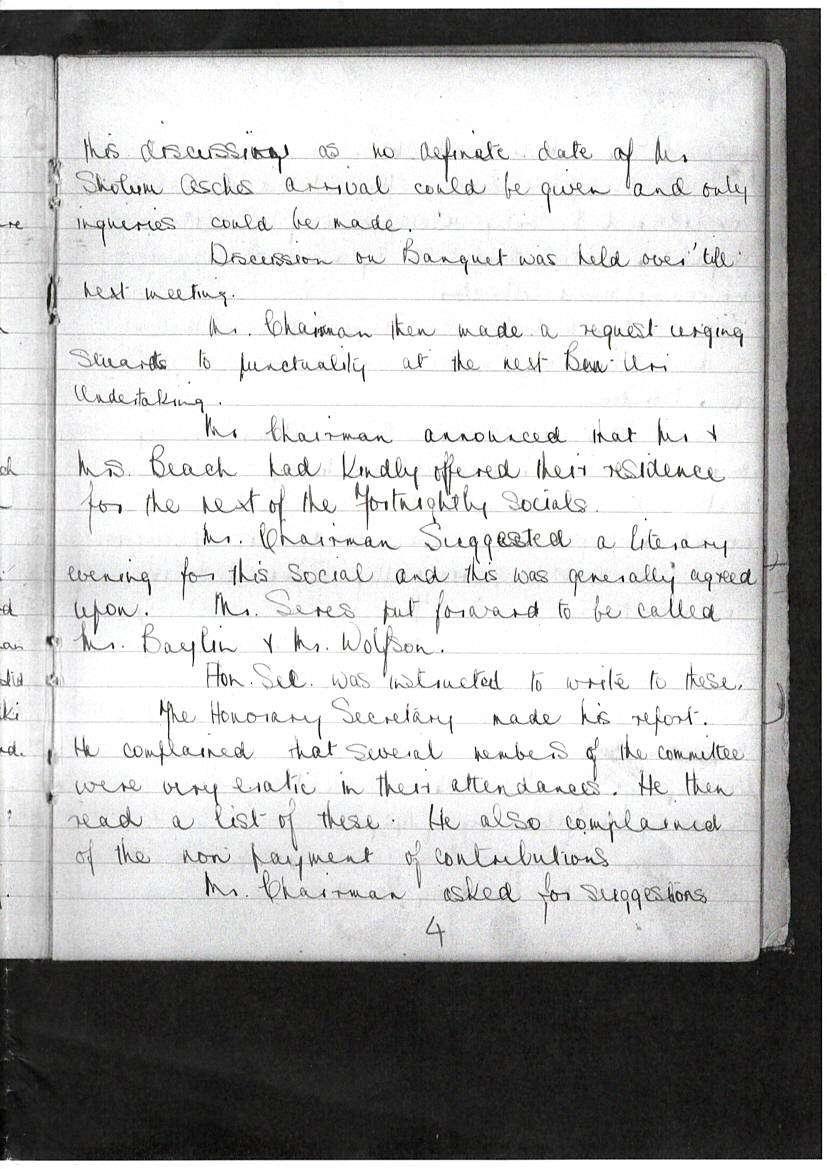 this discussion as no definate date of Mr
Sholum Aschs arrival could be given and only
inqueries could be made.
Discussion on Banquet was held over 'till
next meeting.
Mr. Chairman then made a request urging
Stuards to punctuality at the next Ben Uri
Undertaking.
Mr Chairman announced that Mr &
Mrs. Beach had Kindly offered their residence
for the next of the Fortnightly Socials.
Mr. Chairman Suggested a literary
evening for this Social and this was generally agreed
upon. Mr. Seres put forward to be called
Mr. Baylin & Mr. Wolfson.
Hon. Sec. was instructed to write to these.
The Honorary Secretary made his report.
He complained that several members of the committee
were very eratic in their attendances. He then
read a list of these. He also complained
of the non payment of contributions
Mr. Chairman asked for suggestions
4